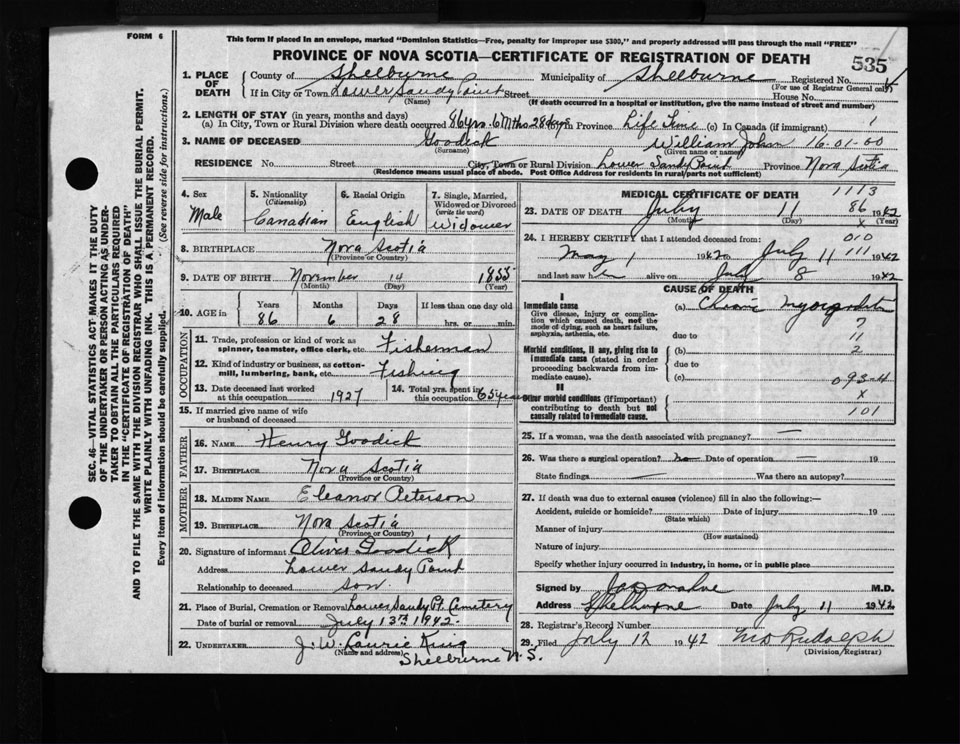 FORM 6
This form if placed in an envelope, marked "Dominion Statistics—Free, penalty for improper use $300," and properly addressed will pass through the mail "FREE"
PROVINCE OF NOVA SCOTIA—CERTIFICATE OF REGISTRATION OF DEATH
535
1. PLACE OF DEATH
County of Shelburne Municipality of Shelburne Registered No.
(For use of Registrar General only)
If in City or Town Lower Sandy Point Street House No.
(Name) (If death occurred in a hospital or institution, give the name instead of street and number)
2. LENGTH OF STAY (in years, months and days)
(a) In City, Town or Rural Division where death occurred 86 yrs. 6 Mths 28 days in Province Life Time (c) In Canada (if immigrant)
3. NAME OF DECEASED Goodick William John 16-01-00
(Surname) (Given name or names)
RESIDENCE No. Street City, Town or Rural Division Lower Sandy Point Province Nova Scotia
(Residence means usual place of abode. Post Office Address for residents in rural parts not sufficient)
4. Sex Male
5. Nationality (Citizenship) Canadian
6. Racial Origin English
7. Single, Married, Widowed or Divorced (write the word) Widower
8. BIRTHPLACE Nova Scotia
(Province or Country)
9. DATE OF BIRTH November 14 1855
(Month) (Day) (Year)
10. AGE in Years Months Days If less than one day old
86 6 28 hrs. or min.
OCCUPATION
11. Trade, profession or kind of work as spinner, teamster, office clerk, etc. Fisherman
12. Kind of industry or business, as cotton-mill, lumbering, bank, etc. Fishing
13. Date deceased last worked at this occupation 1927
14. Total yrs. spent in this occupation 65 years
15. If married give name of wife or husband of deceased
FATHER
16. NAME Henry Goodick
17. BIRTHPLACE Nova Scotia
(Province or Country)
MOTHER
18. MAIDEN NAME Eleanor Peterson
19. BIRTHPLACE Nova Scotia
(Province or Country)
20. Signature of informant Oliver Goodick
Address Lower Sandy Point
Relationship to deceased son
21. Place of Burial, Cremation or Removal Lower Sandy Pt. Cemetery
Date of burial or removal July 13th 1942.
22. UNDERTAKER J. W. Laurie King
(Name and address)
Shelburne N.S.
MEDICAL CERTIFICATE OF DEATH
1113
23. DATE OF DEATH July 11 86 1942
(Month) (Day) x (Year)
24. I HEREBY CERTIFY that I attended deceased from: 010
May 1 1942 to July 11 111 1942
and last saw h alive on July 8 1942
CAUSE OF DEATH
I
Immediate cause (a) Chronic
Give disease, injury or complication which caused death, not the mode of dying, such as heart failure, asphyxia, asthenia, etc.
7
due to 11
Morbid conditions, if any, giving rise to immediate cause (stated in order proceeding backwards from immediate cause). (b) 2
due to
(c) 093-4
II
Other morbid conditions (if important) contributing to death but not causally related to immediate cause. x
101
25. If a woman, was the death associated with pregnancy? —
26. Was there a surgical operation? no Date of operation — 19
State findings — Was there an autopsy?
27. If death was due to external causes (violence) fill in also the following:—
Accident, suicide or homicide? Date of injury 19
(State which)
Manner of injury
(How sustained)
Nature of injury
Specify whether injury occurred in industry, in home, or in public place
Signed by M.D.
Address Shelburne Date July 11 1942
28. Registrar's Record Number
29. Filed July 12 1942 Rudolph
(Division Registrar)
SEC. 46—VITAL STATISTICS ACT MAKES IT THE DUTY
OF THE UNDERTAKER OR PERSON ACTING AS UNDER-
TAKER TO OBTAIN ALL THE PARTICULARS REQUIRED
IN THE "CERTIFICATE OF REGISTRATION OF DEATH"
AND TO FILE THE SAME WITH THE DIVISION REGISTRAR WHO SHALL ISSUE THE BURIAL PERMIT.
WRITE PLAINLY WITH UNFADING INK. THIS IS A PERMANENT RECORD.
Every item of information should be carefully supplied. (See reverse side for instructions.)